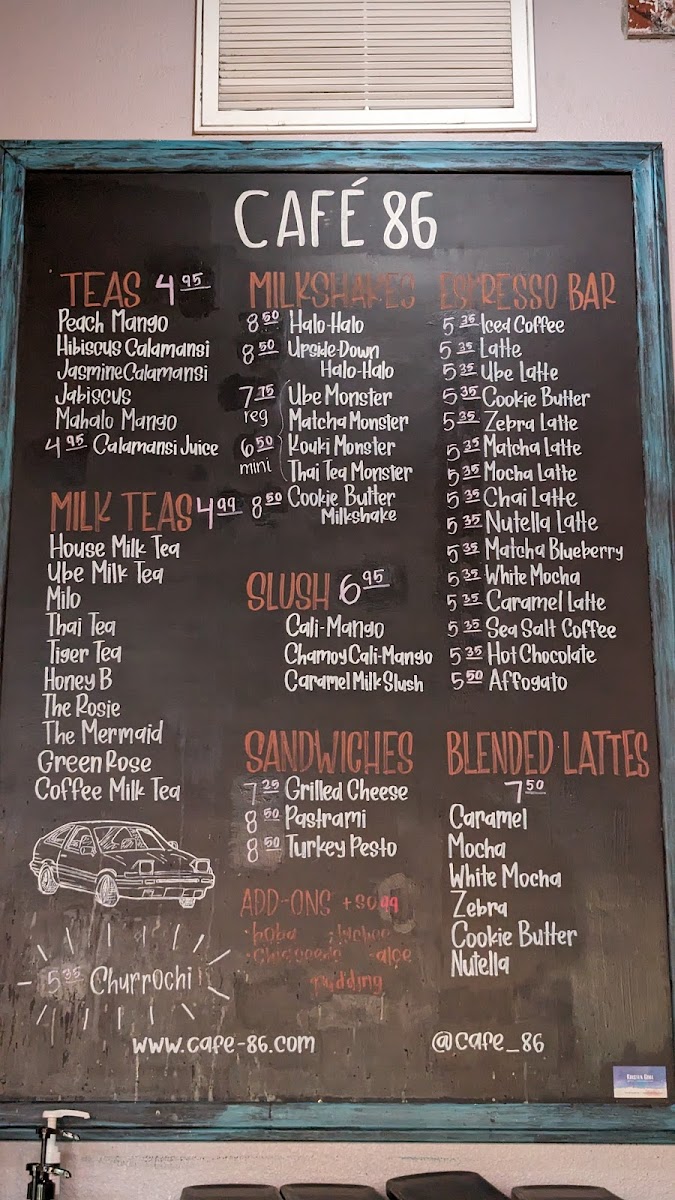 CAFÉ 86
TEAS 4.95
Peach Mango
Hibiscus Calamansi
Jasmine Calamansi
Jabiscus
Mahalo Mango
4.95 Calamansi Juice
MILK TEAS 4.99
House Milk Tea
Ube Milk Tea
Milo
Thai Tea
Tiger Tea
Honey B
The Rosie
The Mermaid
Green Rose
Coffee Milk Tea
5.35 Churrochi
MILKSHAKES
8.50 Halo-Halo
8.50 Upside-Down
Halo-Halo
7.75 Ube Monster
reg Matcha Monster
6.50 Kouki Monster
mini Thai Tea Monster
8.50 Cookie Butter
Milkshake
SLUSH 6.95
Cali-Mango
Chamoy Cali-Mango
Caramel Milk Slush
SANDWICHES
7.25 Grilled Cheese
8.50 Pastrami
8.50 Turkey Pesto
ADD-ONS +$0.99
·boba ·lychee
·chiaseeds ·aloe
pudding
ESPRESSO BAR
5.35 Iced Coffee
5.35 Latte
5.35 Ube Latte
5.35 Cookie Butter
5.35 Zebra Latte
5.35 Matcha Latte
5.35 Mocha Latte
5.35 Chai Latte
5.35 Nutella Latte
5.35 Matcha Blueberry
5.35 White Mocha
5.35 Caramel Latte
5.35 Sea Salt Coffee
5.35 Hot Chocolate
5.50 Affogato
BLENDED LATTES
7.50
Caramel
Mocha
White Mocha
Zebra
Cookie Butter
Nutella
www.cafe-86.com
@cafe_86